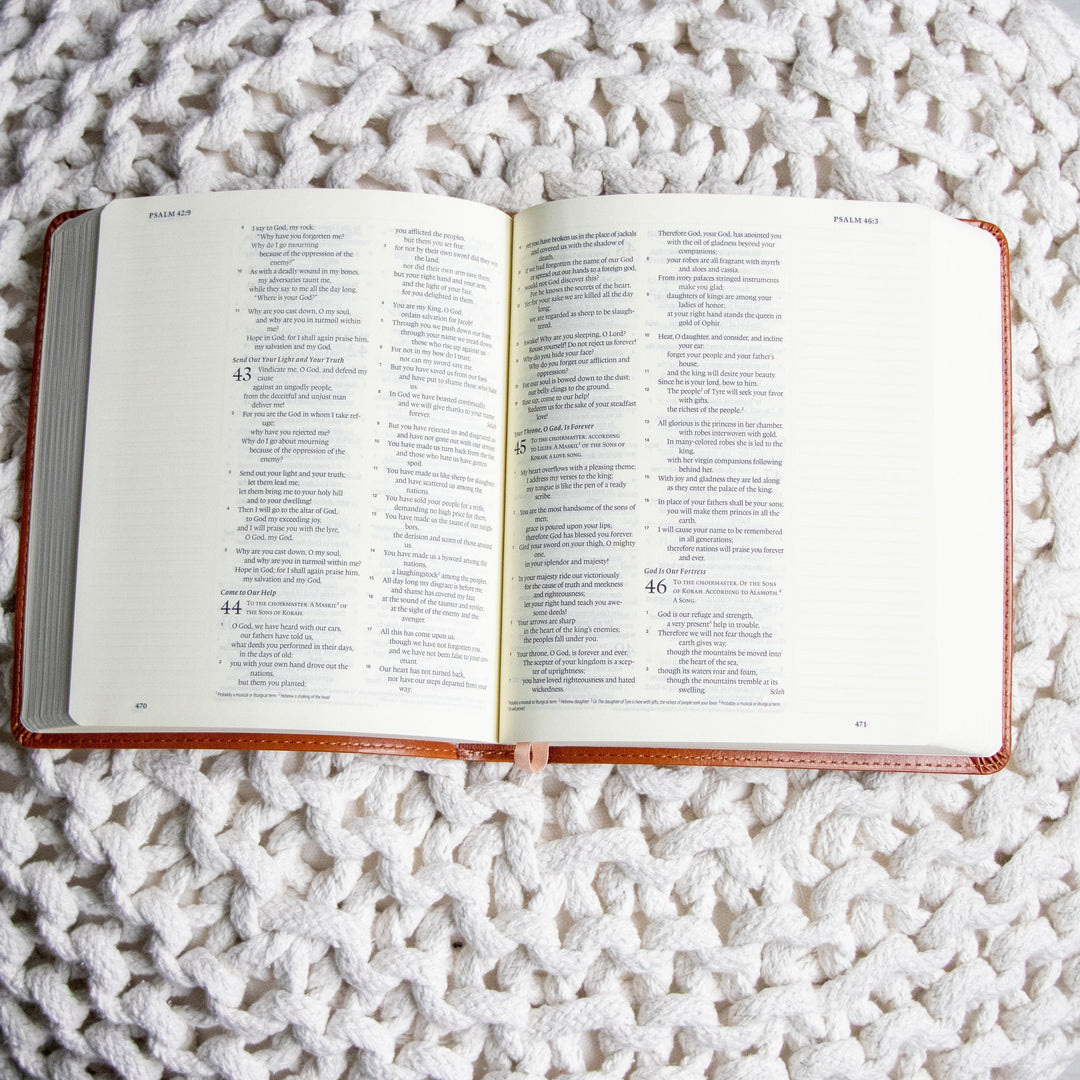 PSALM 42:9
9 I say to God, my rock:
"Why have you forgotten me?
Why do I go mourning
because of the oppression of the
enemy?"
10 As with a deadly wound in my bones,
my adversaries taunt me,
while they say to me all the day long,
"Where is your God?"
11 Why are you cast down, O my soul,
and why are you in turmoil within
me?
Hope in God; for I shall again praise him,
my salvation and my God.
Send Out Your Light and Your Truth
43 Vindicate me, O God, and defend my
cause
against an ungodly people,
from the deceitful and unjust man
deliver me!
2 For you are the God in whom I take ref-
uge;
why have you rejected me?
Why do I go about mourning
because of the oppression of the
enemy?
3 Send out your light and your truth;
let them lead me;
let them bring me to your holy hill
and to your dwelling!
4 Then I will go to the altar of God,
to God my exceeding joy,
and I will praise you with the lyre,
O God, my God.
5 Why are you cast down, O my soul,
and why are you in turmoil within me?
Hope in God; for I shall again praise him,
my salvation and my God.
Come to Our Help
44 TO THE CHOIRMASTER. A MASKIL1 OF
THE SONS OF KORAH.
1 O God, we have heard with our ears,
our fathers have told us,
what deeds you performed in their days,
in the days of old:
2 you with your own hand drove out the
nations,
but them you planted;
you afflicted the peoples,
but them you set free;
3 for not by their own sword did they win
the land,
nor did their own arm save them,
but your right hand and your arm,
and the light of your face,
for you delighted in them.
4 You are my King, O God;
ordain salvation for Jacob!
5 Through you we push down our foes;
through your name we tread down
those who rise up against us.
6 For not in my bow do I trust,
nor can my sword save me.
7 But you have saved us from our foes
and have put to shame those who hate
us.
8 In God we have boasted continually,
and we will give thanks to your name
forever. Selah
9 But you have rejected us and disgraced us
and have not gone out with our armies.
10 You have made us turn back from the foe,
and those who hate us have gotten
spoil.
11 You have made us like sheep for slaughter
and have scattered us among the
nations.
12 You have sold your people for a trifle,
demanding no high price for them.
13 You have made us the taunt of our neigh-
bors,
the derision and scorn of those around
us.
14 You have made us a byword among the
nations,
a laughingstock2 among the peoples.
15 All day long my disgrace is before me,
and shame has covered my face
16 at the sound of the taunter and reviler,
at the sight of the enemy and the
avenger.
17 All this has come upon us,
though we have not forgotten you,
and we have not been false to your cov-
enant.
18 Our heart has not turned back,
nor have our steps departed from your
way;
1 Probably a musical or liturgical term 2 Hebrew a shaking of the head
470
PSALM 46:3
yet you have broken us in the place of jackals
and covered us with the shadow of
death.
If we had forgotten the name of our God
or spread out our hands to a foreign god,
would not God discover this?
For he knows the secrets of the heart.
Yet for your sake we are killed all the day
long;
we are regarded as sheep to be slaugh-
tered.
Awake! Why are you sleeping, O Lord?
Rouse yourself! Do not reject us forever!
Why do you hide your face?
Why do you forget our affliction and
oppression?
For our soul is bowed down to the dust;
our belly clings to the ground.
Rise up; come to our help!
Redeem us for the sake of your steadfast
love!
Your Throne, O God, Is Forever
45 TO THE CHOIRMASTER: ACCORDING
TO LILIES. A MASKIL3 OF THE SONS OF
KORAH; A LOVE SONG.
1 My heart overflows with a pleasing theme;
I address my verses to the king;
my tongue is like the pen of a ready
scribe.
2 You are the most handsome of the sons of
men;
grace is poured upon your lips;
therefore God has blessed you forever.
3 Gird your sword on your thigh, O mighty
one,
in your splendor and majesty!
4 In your majesty ride out victoriously
for the cause of truth and meekness
and righteousness;
let your right hand teach you awe-
some deeds!
5 Your arrows are sharp
in the heart of the king's enemies;
the peoples fall under you.
6 Your throne, O God, is forever and ever.
The scepter of your kingdom is a scep-
ter of uprightness;
7 you have loved righteousness and hated
wickedness.
Therefore God, your God, has anointed you
with the oil of gladness beyond your
companions;
8 your robes are all fragrant with myrrh
and aloes and cassia.
From ivory palaces stringed instruments
make you glad;
9 daughters of kings are among your
ladies of honor;
at your right hand stands the queen in
gold of Ophir.
10 Hear, O daughter, and consider, and incline
your ear:
forget your people and your father's
house,
11 and the king will desire your beauty.
Since he is your lord, bow to him.
12 The people2 of Tyre will seek your favor
with gifts,
the richest of the people.2
13 All glorious is the princess in her chamber,
with robes interwoven with gold.
14 In many-colored robes she is led to the
king,
with her virgin companions following
behind her.
15 With joy and gladness they are led along
as they enter the palace of the king.
16 In place of your fathers shall be your sons;
you will make them princes in all the
earth.
17 I will cause your name to be remembered
in all generations;
therefore nations will praise you forever
and ever.
God Is Our Fortress
46 TO THE CHOIRMASTER. OF THE SONS
OF KORAH. ACCORDING TO ALAMOTH.4
A SONG.
1 God is our refuge and strength,
a very present5 help in trouble.
2 Therefore we will not fear though the
earth gives way,
though the mountains be moved into
the heart of the sea,
3 though its waters roar and foam,
though the mountains tremble at its
swelling. Selah
Probably a musical or liturgical term 2 Hebrew daughter 3 Or The daughter of Tyre is here with gifts, the richest of people seek your favor 4 Probably a musical or liturgical term
471